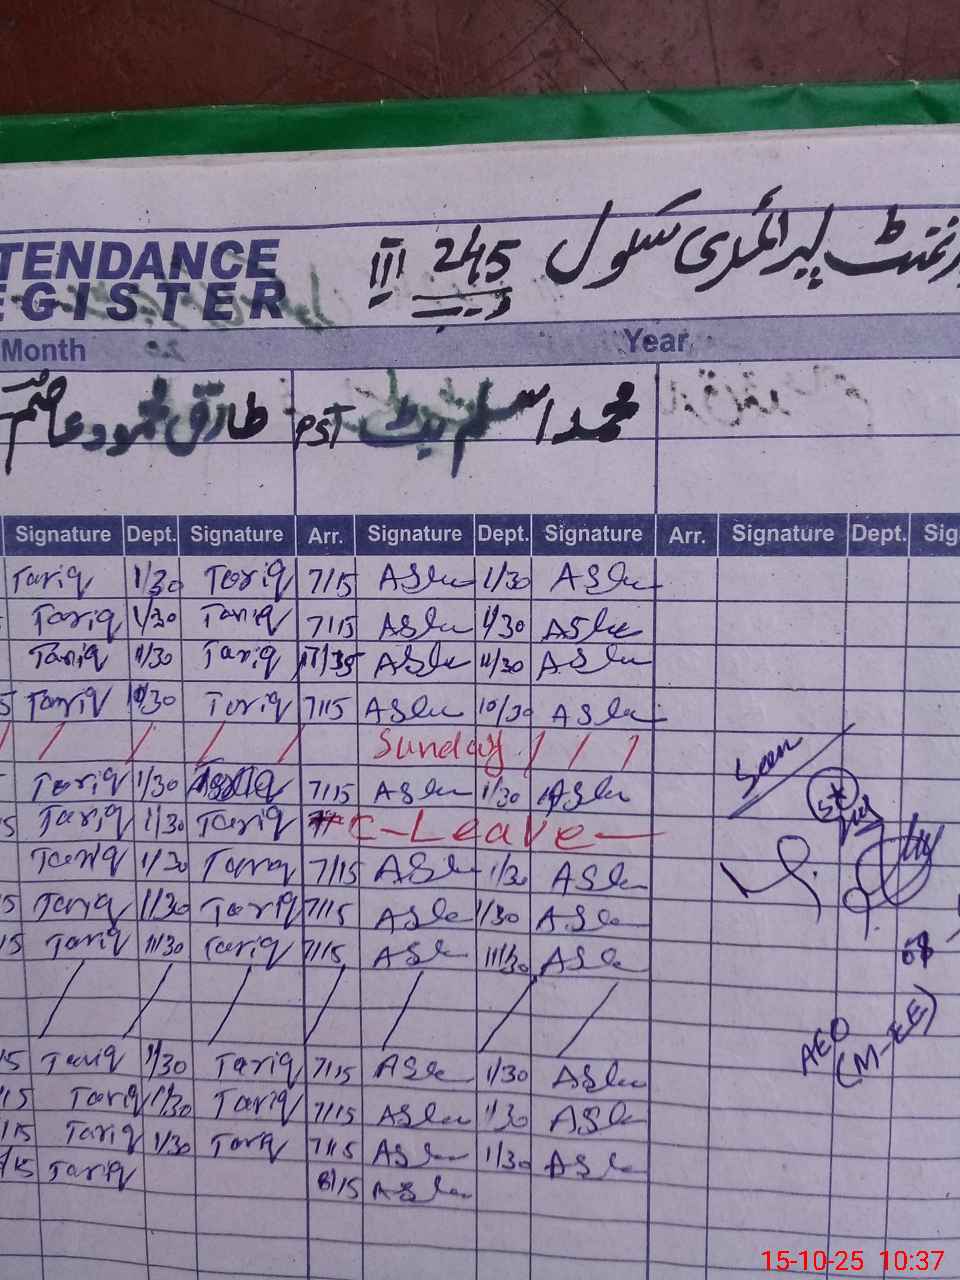 رنمنٹ پرائمری سکول 245 گ ب III
TENDANCE
EGISTER
Month Year
طارق محمود عاصم محمد اسلم بٹ PST
Signature Dept. Signature Arr. Signature Dept. Signature Arr. Signature Dept. Sig
Tariq 1/30 Tariq 7/15 Aslam 1/30 Aslam
Tariq 1/30 Tariq 7/15 Aslam 1/30 Aslam
Tariq 11/30 Tariq Aslam 11/30 Aslam
5 Tariq 10/30 Tariq 7/15 Aslam 10/30 Aslam
Sunday
Tariq 1/30 7/15 Aslam 1/30 Aslam
5 Tariq 1/30 Tariq C-Leave
Tariq 1/30 Tariq 7/15 Aslam 1/30 Aslam
5 Tariq 1/30 Tariq 7/15 Aslam 1/30 Aslam
15 Tariq 11/30 Tariq 7/15 Aslam 11/30 Aslam
15 Tariq 1/30 Tariq 7/15 Aslam 1/30 Aslam
15 Tariq 1/30 Tariq 7/15 Aslam 1/30 Aslam
/15 Tariq 1/30 Tariq 7/15 Aslam 1/30 Aslam
/15 Tariq 8/15 Aslam
Seen
AEO
(M-EE)
15-10-25 10:37